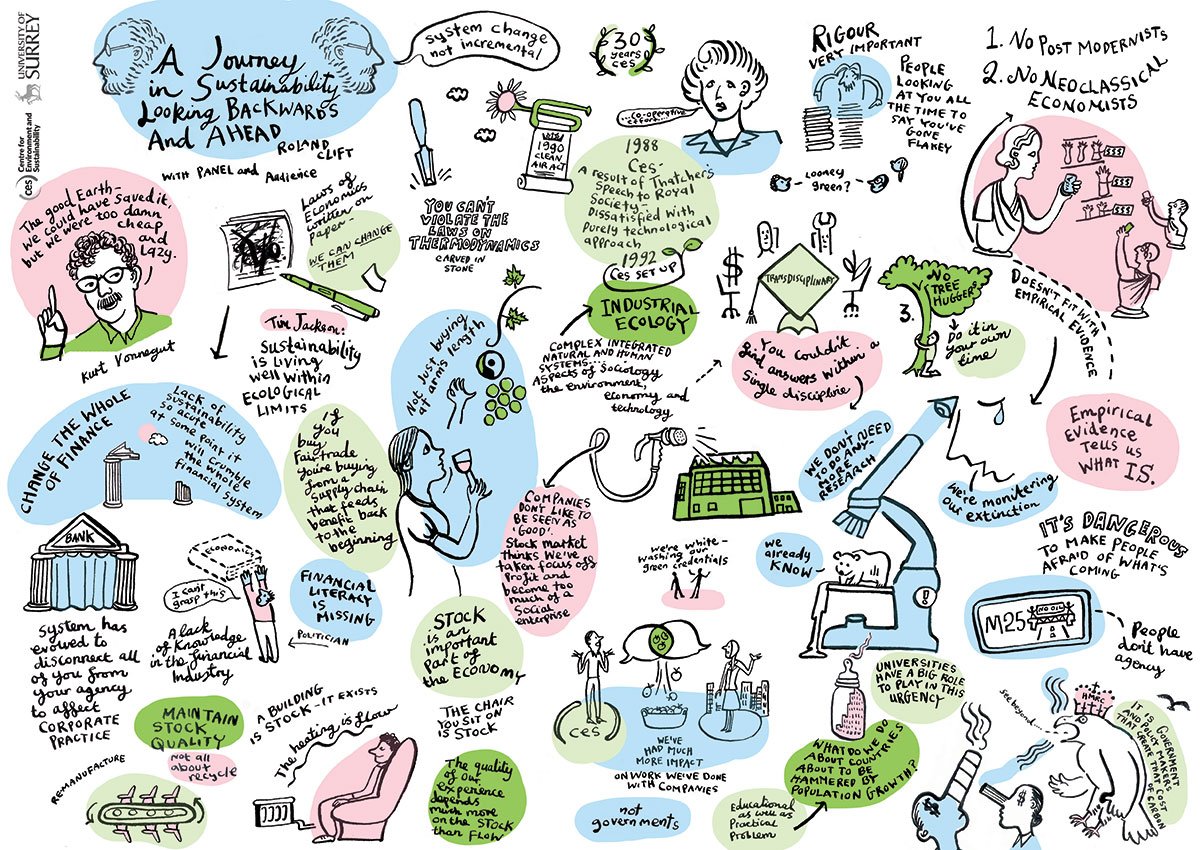 UNIVERSITY OF
SURREY
(ces)
Centre for
Environment and
Sustainability
A Journey
in Sustainability
Looking BACKWARDS
And AHEAD
ROLAND
CLIFT
WITH PANEL and Audience
System change
not incremental
30
years
ces
...co-operative
effort...
RIGOUR
VERY IMPORTANT
PEOPLE
LOOKING
AT YOU ALL
THE TIME TO
SAY YOU'VE
GONE
FLAKEY
Looney
green?
1. NO POST MODERNISTS
2. NO NEOCLASSICAL
ECONOMISTS
$$$
$$$
$$$
DOESN'T FIT WITH
EMPIRICAL EVIDENCE
The good Earth-
we could have saved it,
but we were too damn
cheap
and
lazy.
Kurt Vonnegut
Laws of
Economics
written on
paper-
WE CAN CHANGE
THEM
YOU CAN'T
VIOLATE THE
LAWS ON
THERMODYNAMICS
CARVED IN
STONE
1990
CLEAN
AIR ACT
1988
Ces-
A result of Thatcher's
Speech to Royal
Society-
Dissatisfied with
purely technological
approach
1992
Ces SET UP
INDUSTRIAL
ECOLOGY
COMPLEX INTEGRATED
NATURAL AND HUMAN
SYSTEMS...
Aspects of sociology
the environment,
economy and
technology
$
TRANSDISCIPLINARY
You couldn't
find answers within a
Single discipline
3.
NO
TREE
HUGGERS
Do it in
your own
time
Empirical
Evidence
Tells us
WHAT IS.
Tim Jackson:
Sustainability
is living
well within
ECOLOGICAL
LIMITS
CHANGE THE WHOLE
OF FINANCE
Lack of
sustainability
so acute
at some point it
will crumble
the whole
financial system
BANK
System has
evolved to
disconnect all
of you from
your agency
to affect
CORPORATE
PRACTICE
I can't
grasp this
A lack
of knowledge
in the financial
Industry
FINANCIAL
LITERACY
IS
MISSING
POLITICIAN
if
you
buy
Fairtrade
you're buying
from a
Supply chain
that feeds
benefit back
to the
beginning
Not just buying
at arms length
COMPANIES
DON'T LIKE TO
BE SEEN AS
'GOOD'.
Stock market
thinks we've
taken focus off
Profit and
become too
much of a
Social
enterprise
we're white-
washing our
green credentials
WE DON'T NEED
TO DO ANY-
MORE
RESEARCH
we
already
KNOW
We're monitoring
our extinction
IT'S DANGEROUS
TO MAKE PEOPLE
AFRAID OF WHAT'S
COMING
M25
NO OIL
People
don't have
agency
STOCK
is an
important
part of
the ECONOMY
THE CHAIR
YOU SIT ON
IS STOCK
A BUILDING
IS STOCK-IT EXISTS
The heating is flow
MAINTAIN
STOCK
QUALITY
Not all
about
recycle
RE-MANUFACTURE
The quality
of our
experience
depends
much more
on the STOCK
than FLOW
(ces)
WE'VE
HAD MUCH
MORE IMPACT
ON WORK WE'VE DONE
WITH COMPANIES
not
governments
UNIVERSITIES
HAVE A BIG ROLE
TO PLAY IN THIS
URGENCY
WHAT DO WE DO
ABOUT COUNTRIES
ABOUT TO BE
HAMMERED BY
POPULATION GROWTH?
Educational
as well as
Practical
Problem
see beyond...
HMRC
IT IS
GOVERNMENT
AND POLICY MAKERS
THAT CREATE THE COST
OF CARBON
$
$